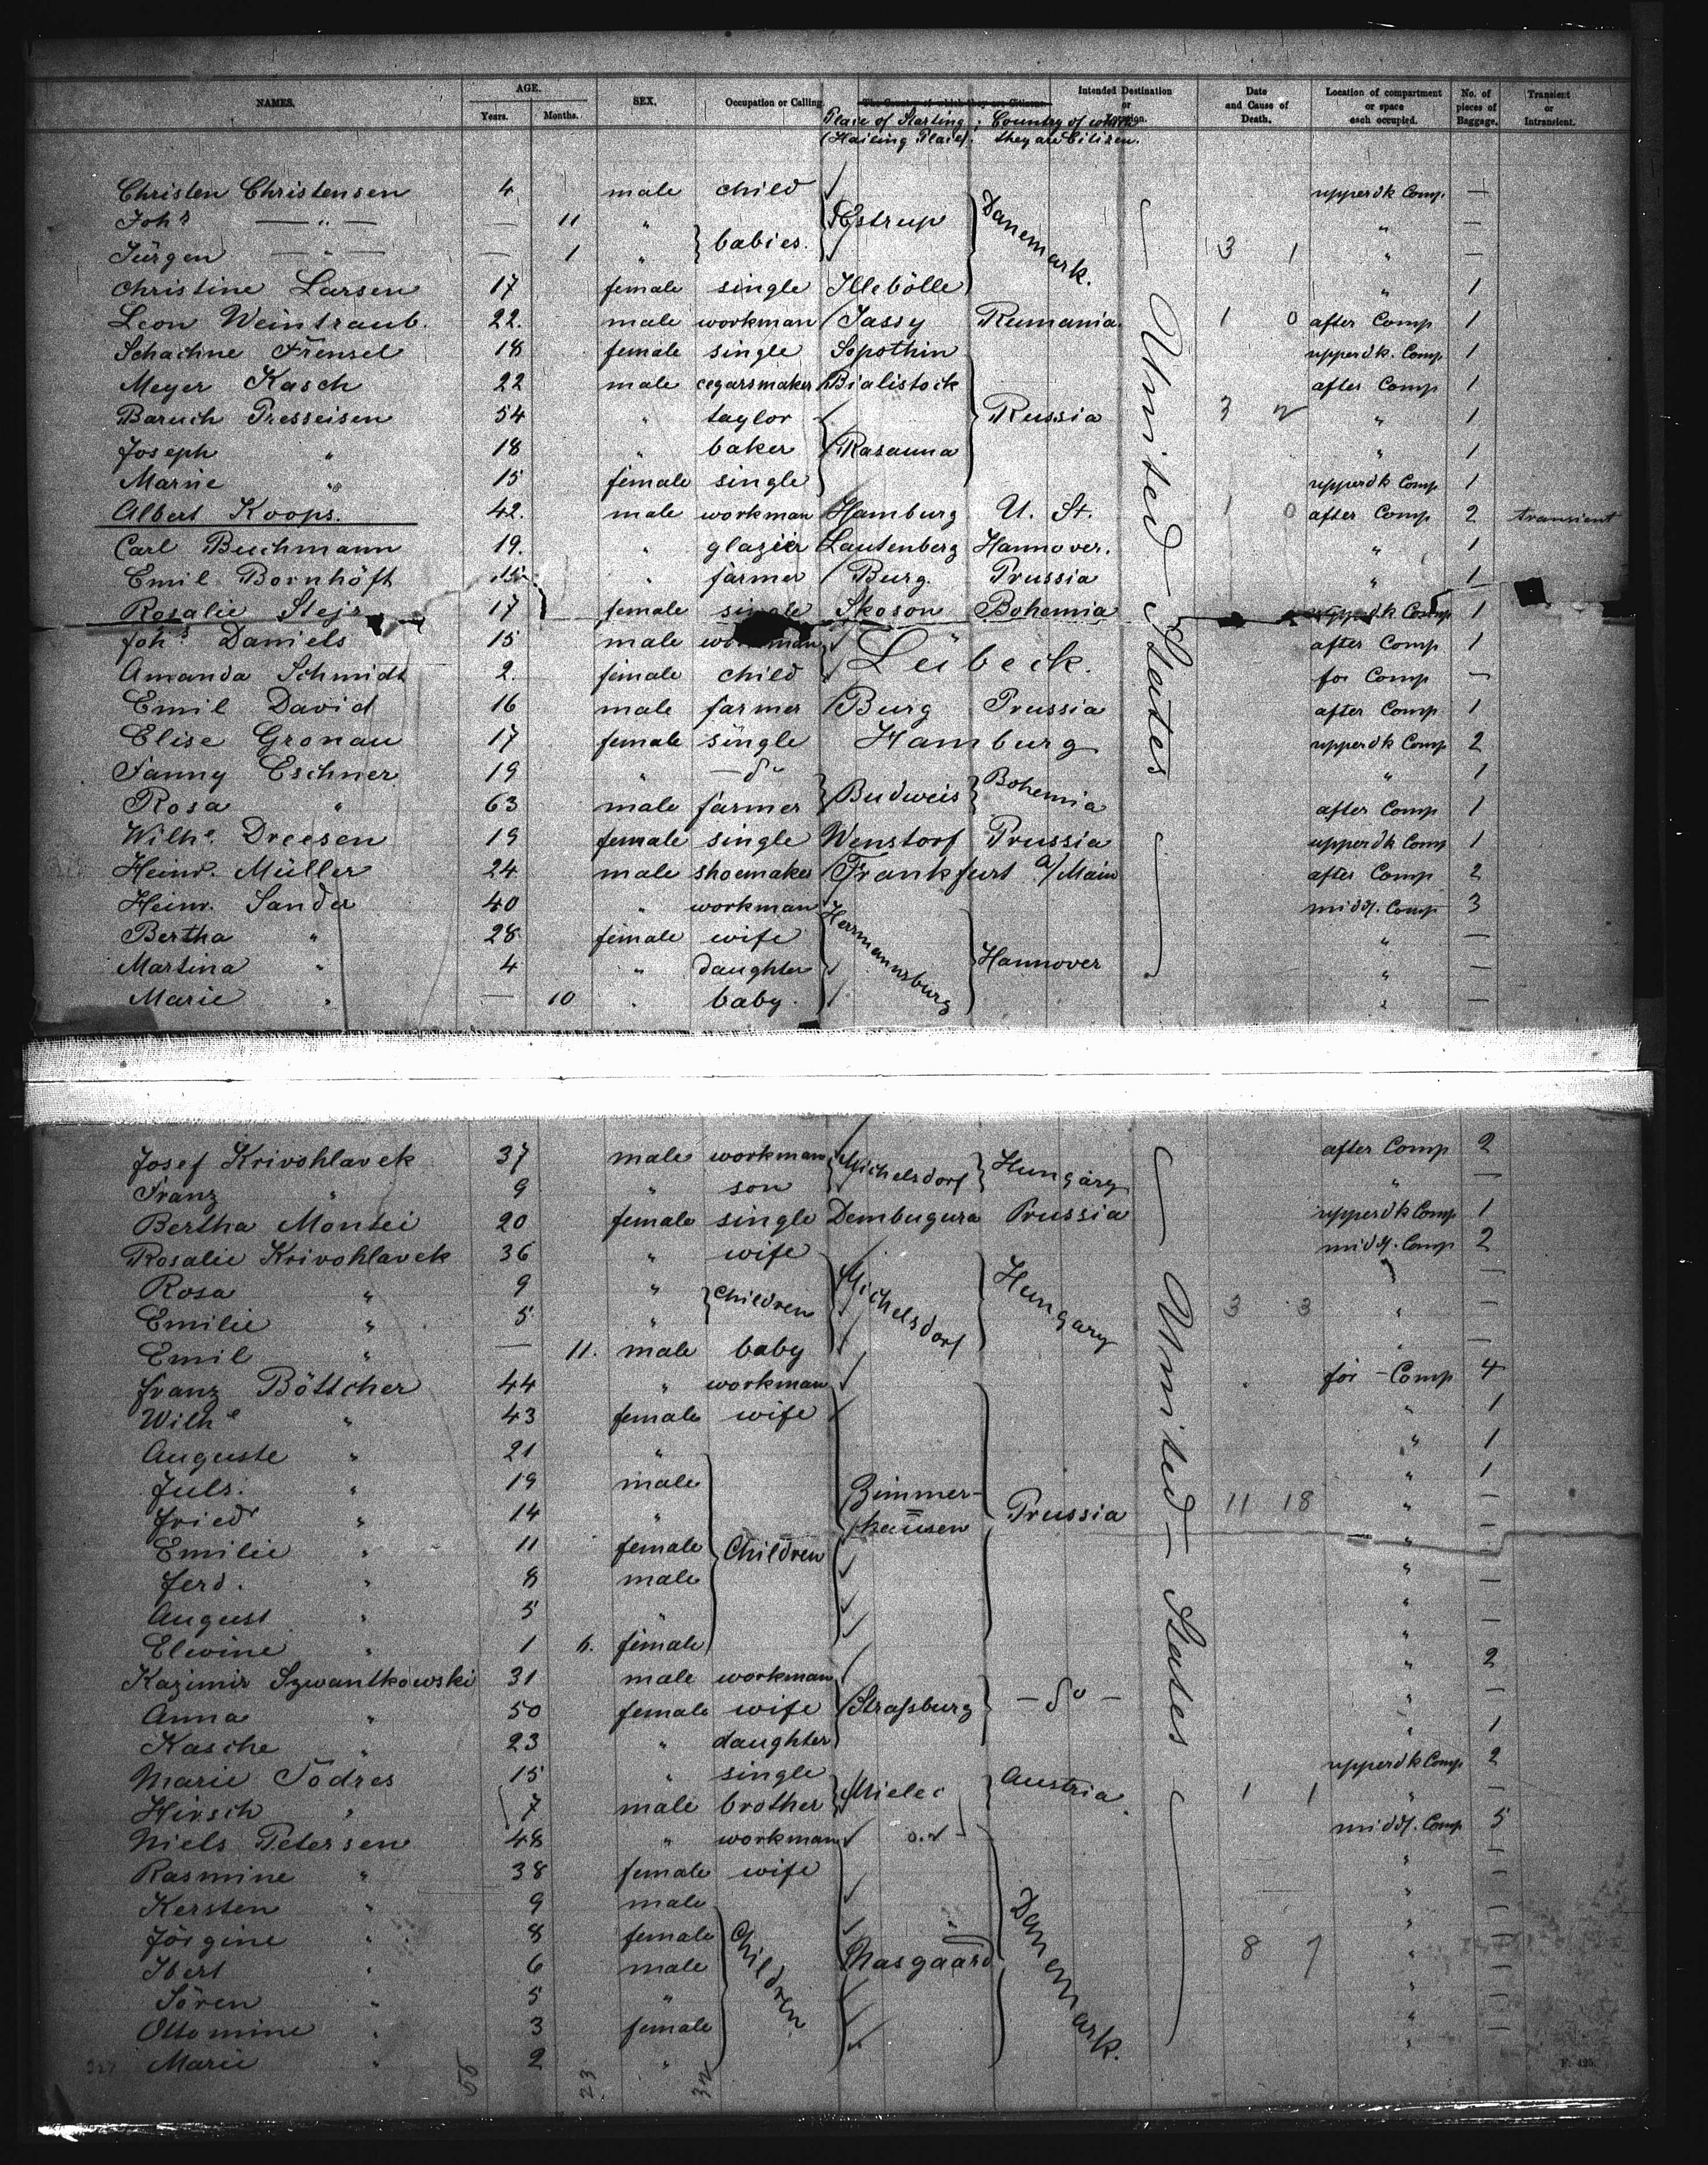 NAMES. AGE. Years. Months. SEX. Occupation or Calling. The Country of which they are Citizens. Intended Destination or Location. Date and Cause of Death. Location of compartment or space each occupied. No. of pieces of Baggage. Transient or Intransient.
Place of Starting (Hailing Place) : Country of which they are Citizen.
Christen Christensen 4 male child upperdk Comp. —
Johs — " — — 11 " babies. Estrup Danemark. " —
Jürgen — " — — 1 " 3 1 " —
Christine Larsen 17 female single Illebölle " 1
Leon Weintraub. 22. male workman Jassy Rumania. 1 0 after Comp 1
Schachne Frensel 18 female single Sopothin upperdk. Comp 1
Meyer Kasch 22 male cegarsmaker Bialistock after Comp 1
Baruch Presseisen 54 " taylor Russia 3 2 " 1
Joseph " 18 " baker Rasauna " 1
Marie " 15 female single upperdk Comp 1
Albert Koops. 42. male workman Hamburg U. St. 1 0 after Comp 2 transient
Carl Buchmann 19. " glazier Lautenberg Hannover. " 1
Emil Bornhöft 15 " farmer Burg. Prussia " 1
Rosalie Stejs 17 female single Skoson Bohemia upperdk Comp 1
Johs Daniels 15 male workman Lübeck. after Comp 1
Amanda Schmidt 2. female child for Comp —
Emil David 16 male farmer Burg Prussia after Comp 1
Elise Gronau 17 female single Hamburg upperdk Comp 2
Fanny Eschner 19 " — do Budweis Bohemia " 1
Rosa " 63 male farmer after Comp 1
Wilhe. Dreesen 19 female single Wenstorf Prussia upperdk Comp 1
Heinr. Müller 24 male shoemaker Frankfurt a/Main after Comp 2
Heinr. Sander 40 " workman Herrmannsburg Hannover middl. Comp 3
Bertha " 28 female wife " —
Martina " 4 " daughter " —
Marie " — 10 " baby. " —
— United – States —
Josef Krivohlavek 37 male workman Michelsdorf Hungary after Comp 2
Franz " 9 " son " —
Bertha Montei 20 female single Dembugura Prussia upperdk Comp 1
Rosalie Krivohlavek 36 " wife Michelsdorf Hungary middl. Comp 2
Rosa " 9 " Children " —
Emilie " 5 " 3 3 " —
Emil " — 11. male baby " —
Franz Böttcher 44 " workman for – Comp 4
Wilhe " 43 female wife " 1
Auguste " 21 " " 1
Juls. " 19 male Zimmer- " 1
Friedr " 14 " hausen Prussia 11 18 " —
Emilie " 11 female Children " —
Ferd. " 8 male " —
August " 5 " " —
Elwine " 1 6. female " —
Kazimir Szwantkowski 31 male workman " 2
Anna " 50 female wife Straßburg — do — " —
Kasche " 23 " daughter " 1
Marie Todres 15 " single Mielec Austria upperdk Comp 2
Hirsch " 7 male brother 1 1 " —
Niels Petersen 48 " workman middl. Comp 5
Rasmine " 38 female wife " —
Kersten " 9 male Children " —
Jörgine " 8 female Danemark. " —
Ibert " 6 male Masgaard 8 7 " —
Sören " 5 " " —
Ottomine " 3 female " —
Marie " 2 " "
— United – States —
55 23 32